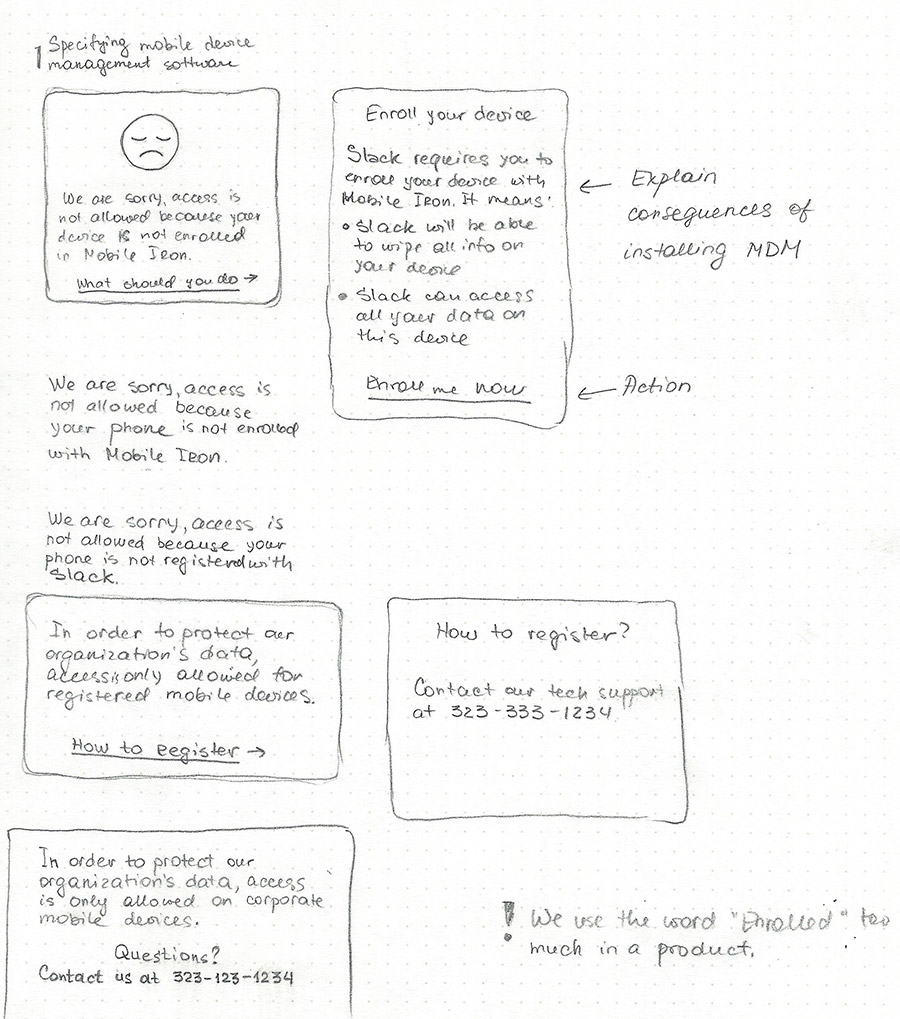 1 Specifying mobile device
management software
We are sorry, access is
not allowed because your
device is not enrolled
in Mobile Iron.
What should you do →
Enroll your device
Slack requires you to
enroll your device with
Mobile Iron. It means:
• Slack will be able
to wipe all info on
your device
• Slack can access
all your data on
this device
Enroll me now
← Explain
consequences of
installing MDM
← Action
We are sorry, access is
not allowed because
your phone is not enrolled
with Mobile Iron.
We are sorry, access is
not allowed because your
phone is not registered with
Slack.
In order to protect our
organization's data,
access is only allowed for
registered mobile devices.
How to register →
How to register?
Contact our tech support
at 323-333-1234
In order to protect our
organization's data, access
is only allowed on corporate
mobile devices.
Questions?
Contact us at 323-123-1234
! We use the word "Enrolled" too
much in a product.